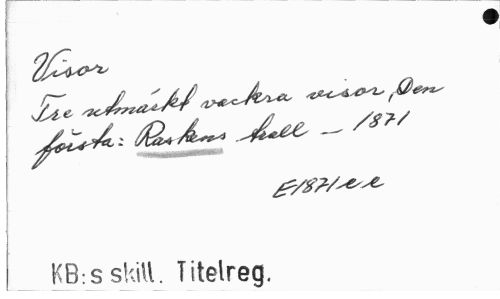 Visor
Tre utmärkt vackra visor, Den
första: Raskens trall – 1871
E1871 e e
KB:s skill. Titelreg.